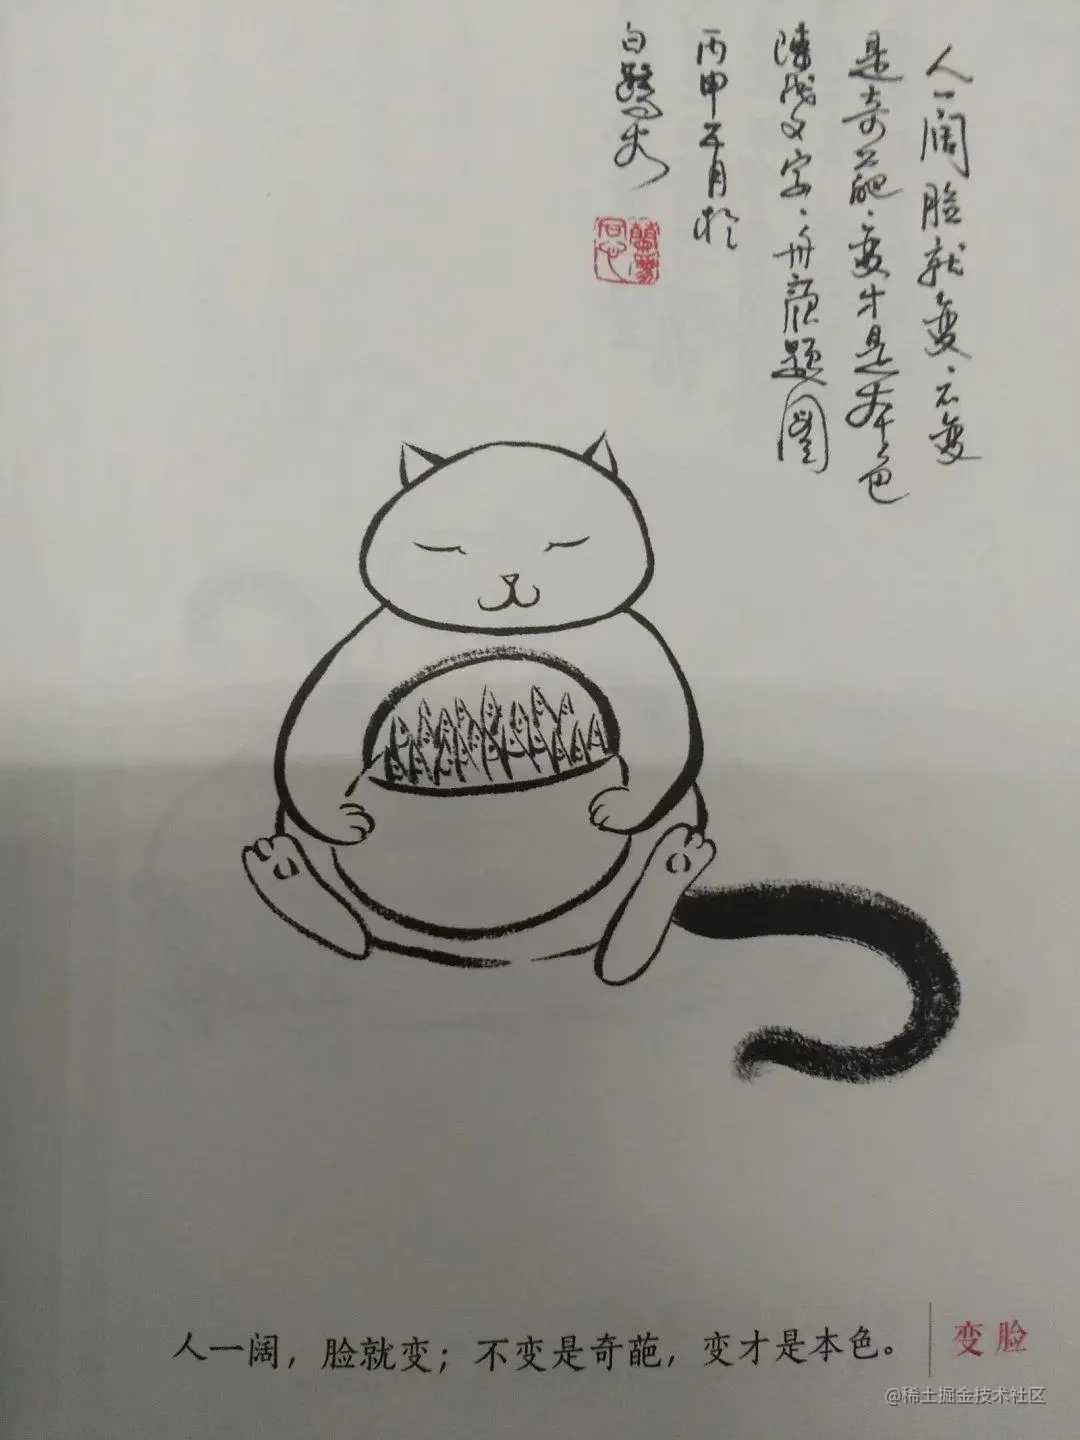 人一阔脸就变、不变
是奇葩、变才是本色
陈茂文字、舟颜题图
丙申五月於
白鹭女
人一阔，脸就变；不变是奇葩，变才是本色。
变脸
@稀土掘金技术社区